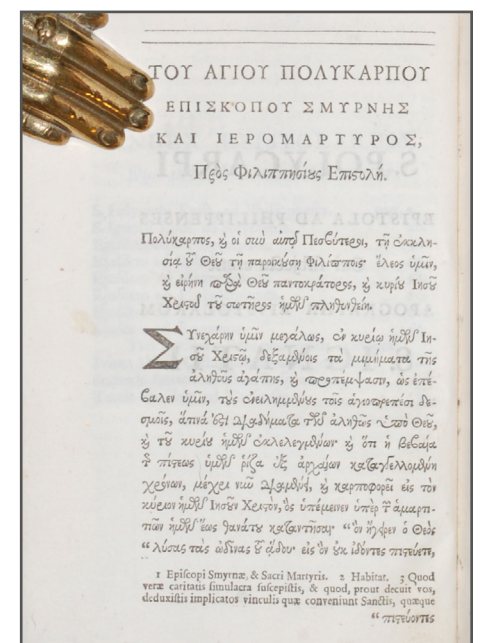 ΤΟΥ ΑΓΙΟΥ ΠΟΛΥΚΑΡΠΟΥ
ΕΠΙΣΚΟΠΟΥ ΣΜΥΡΝΗΣ
ΚΑΙ ΙΕΡΟΜΑΡΤΥΡΟΣ,
Πρὸς Φιλιππησίους Επιστολή.
Πολύκαρπος, καὶ οἱ σὺν αὐτῷ Πρεσβύτεροι, τῇ ἐκκλη-
σίᾳ τοῦ Θεοῦ τῇ παροικούσῃ Φιλίπποις· ἔλεος ὑμῖν,
καὶ εἰρήνη παρὰ Θεοῦ παντοκράτορος, καὶ κυρίου Ιησοῦ
Χριστοῦ τοῦ σωτῆρος ἡμῶν πληθυνθείη.
ΣΥνεχάρην ὑμῖν μεγάλως, ἐν κυρίῳ ἡμῶν Ιη-
σοῦ Χριστῷ, δεξαμένοις τὰ μιμήματα τῆς
ἀληθοῦς ἀγάπης, καὶ προπέμψασιν, ὡς ἐπέ-
βαλεν ὑμῖν, τοὺς ἐνειλημμένους τοῖς ἁγιοπρεπέσι δε-
σμοῖς, ἅτινά ἐστι διαδήματα τῶν ἀληθῶς ὑπὸ Θεοῦ,
καὶ τοῦ κυρίου ἡμῶν ἐκλελεγμένων· καὶ ὅτι ἡ βεβαία
τῆς πίστεως ὑμῶν ῥίζα ἐξ ἀρχαίων καταγγελλομένη
χρόνων, μέχρι νῦν διαμένει, καὶ καρποφορεῖ εἰς τὸν
κύριον ἡμῶν Ιησοῦν Χριστὸν, ὃς ὑπέμεινεν ὑπὲρ τῶν ἁμαρτι-
τιῶν ἡμῶν ἕως θανάτου καταντῆσαι· “ὃν ἤγειρεν ὁ Θεὸς
“λύσας τὰς ὠδῖνας τοῦ ᾅδου· εἰς ὃν οὐκ ἰδόντες πιστεύετε,
1 Episcopi Smyrnæ, & Sacri Martyris. 2 Habitat. 3 Quod
veræ caritatis simulacra suscepistis, & quod, prout decuit vos,
deduxistis implicatos vinculis quæ conveniunt Sanctis, quæque
“πιστεύοντες